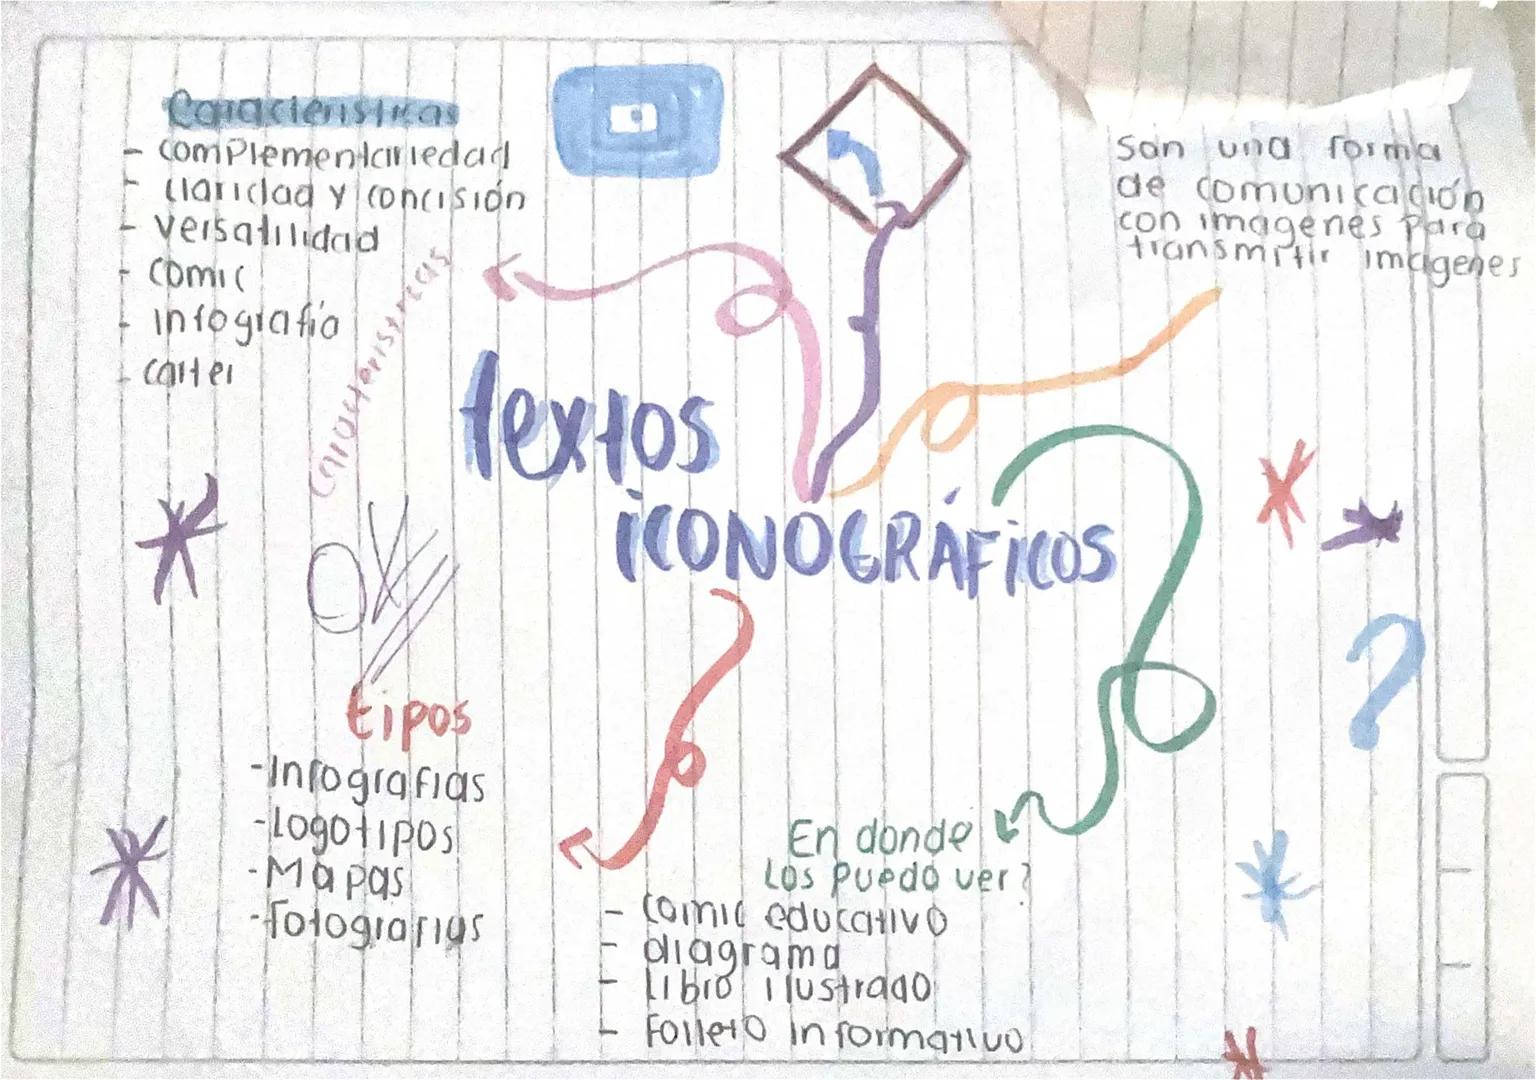 Características
- complementariedad
- claridad y concisión
- versatilidad
- comic
- infografía
- cartel
características
son una forma
de comunicación
con imagenes para
transmitir imagenes
textos
iCONOGRÁFiCOS
tipos
-Infografias
-Logotipos
-Mapas
-fotografias
En donde
Los puedo ver?
- comic educativo
- diagrama
- libro ilustrado
- Folleto informativo
?